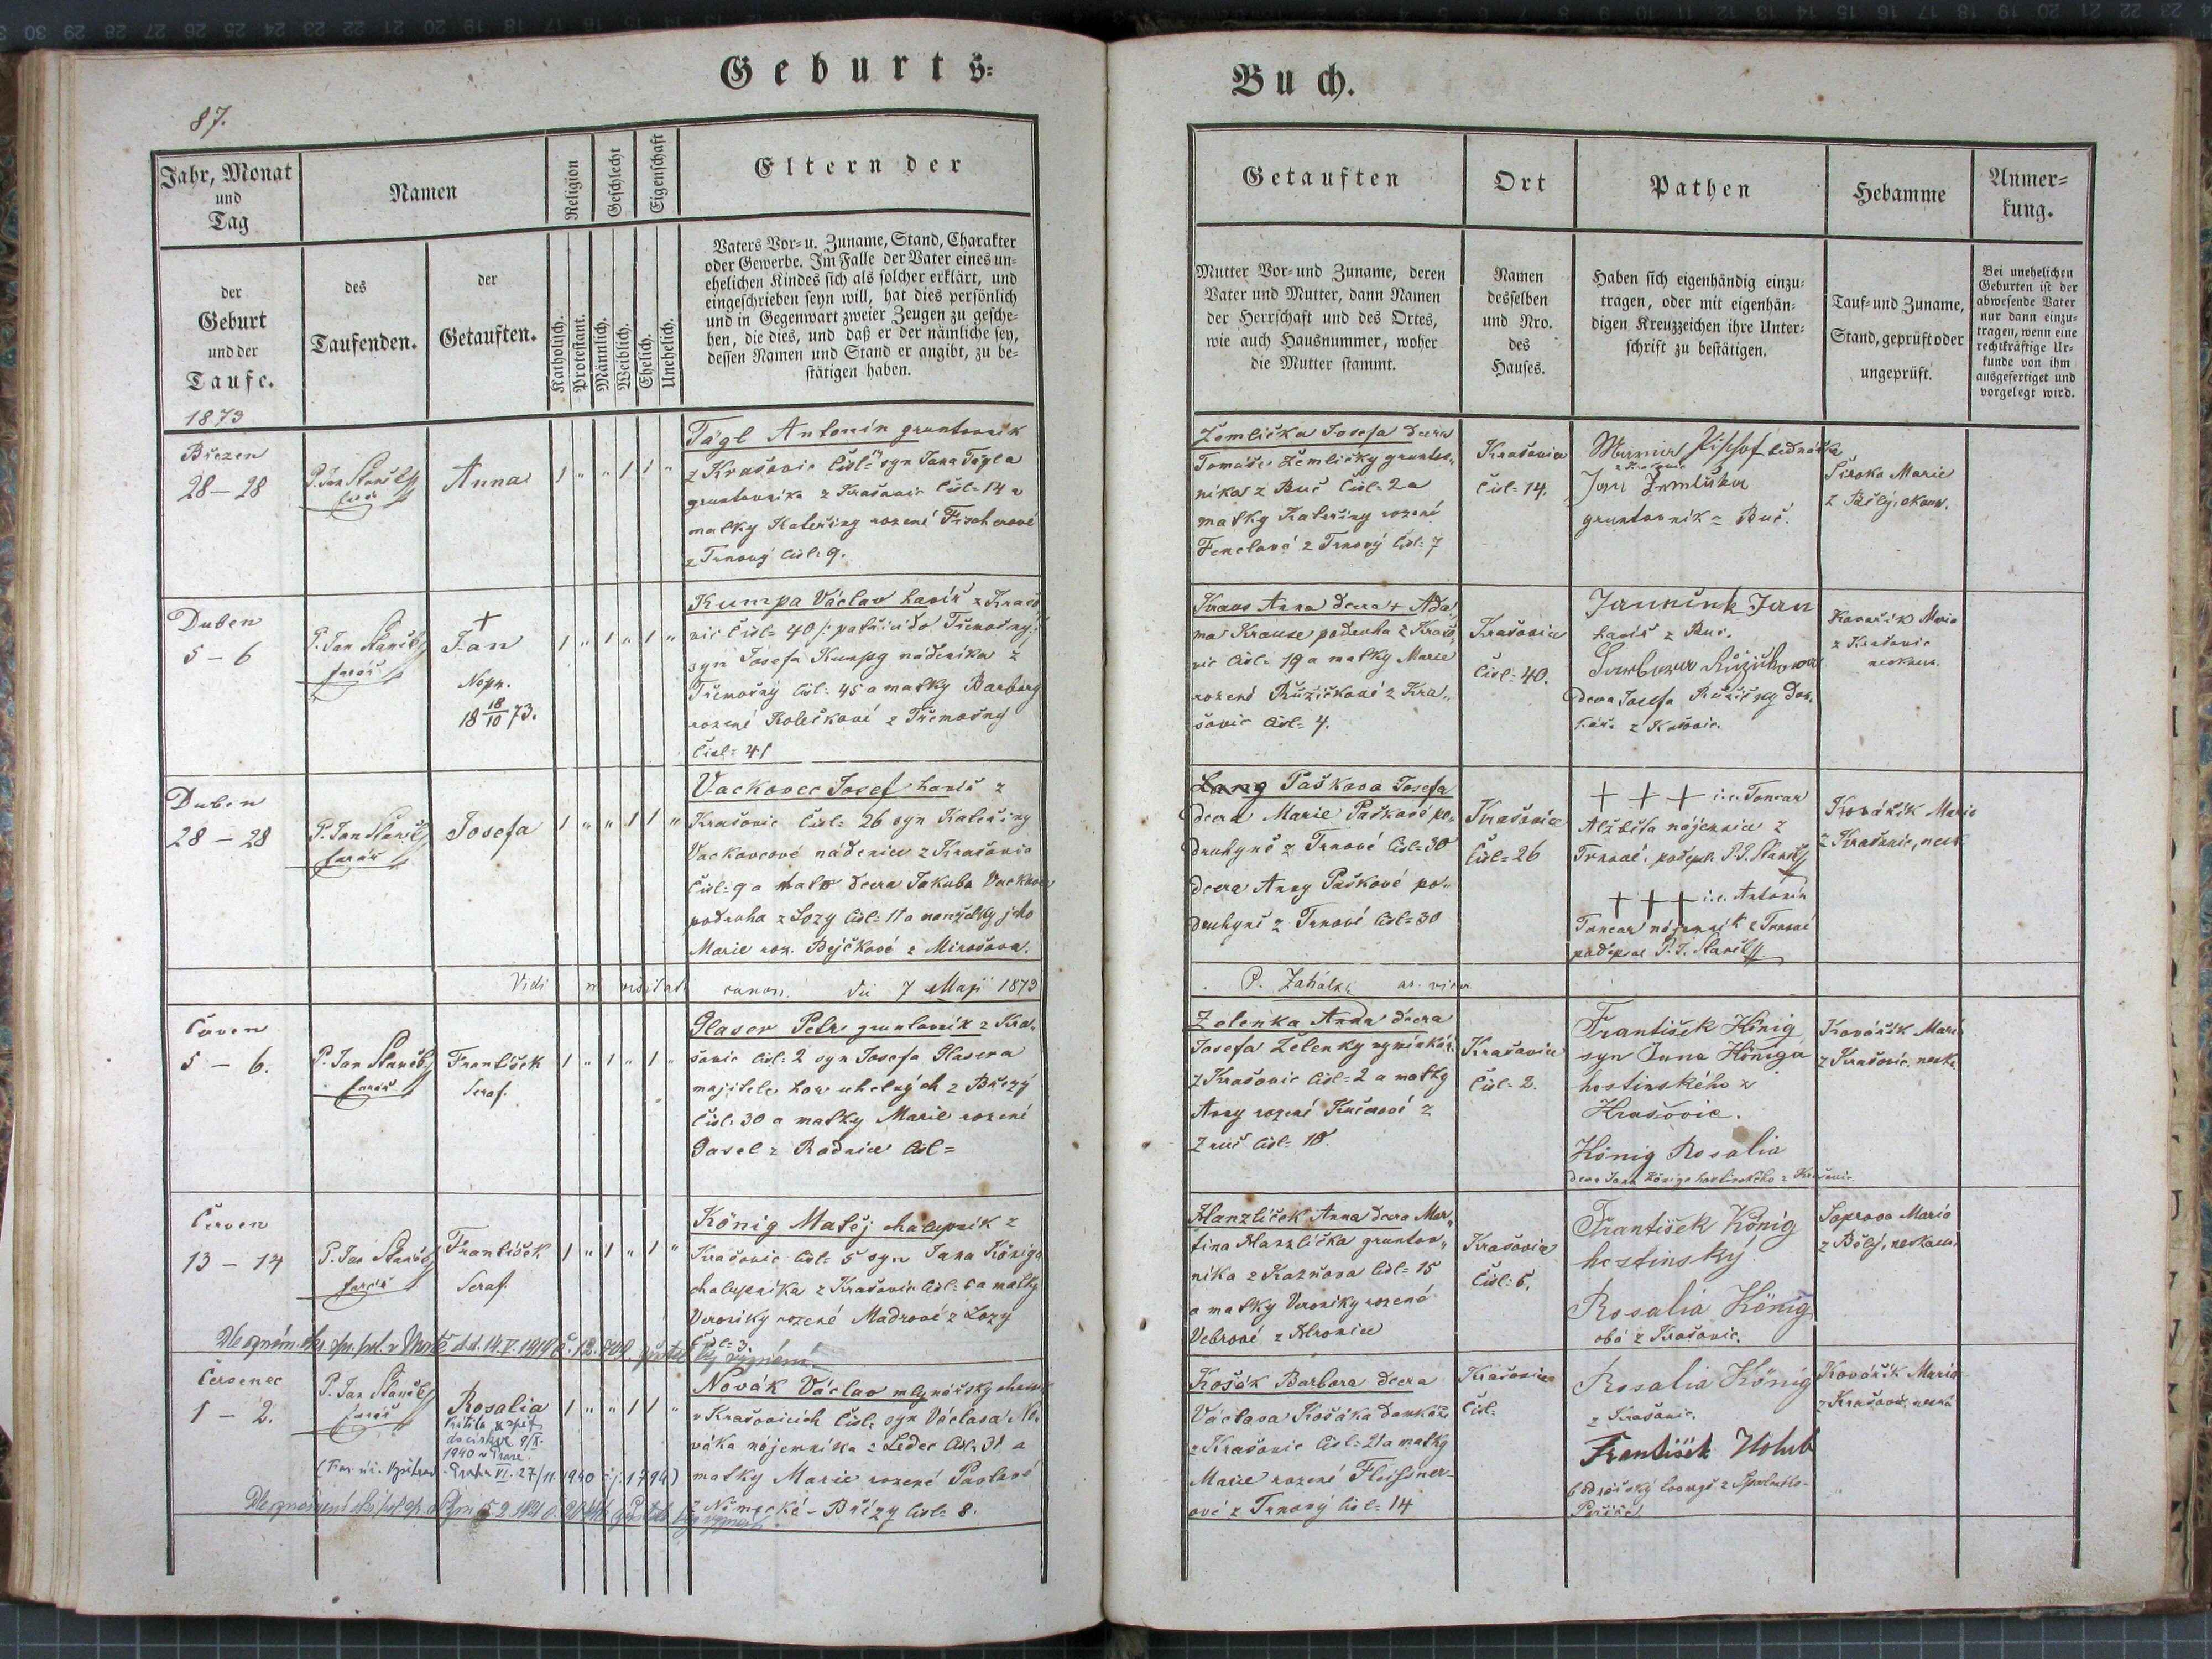 Geburts=
Buch.
87.
Jahr, Monat
und
Tag
der
Geburt
und der
Taufe.
Namen
des
Taufenden.
der
Getauften.
Religion
Katholisch.
Protestant.
Geschlecht
Männlich.
Weiblich.
Eigenschaft
Ehelich.
Unehelich.
Eltern der
Vaters Vor= u. Zuname, Stand, Charakter
oder Gewerbe. Im Falle der Vater eines un=
ehelichen Kindes sich als solcher erklärt, und
eingeschrieben seyn will, hat dies persönlich
und in Gegenwart zweier Zeugen zu gesche=
hen, die dies, und daß er der nämliche sey,
dessen Namen und Stand er angibt, zu be=
stätigen haben.
Getauften
Mutter Vor= und Zuname, deren
Vater und Mutter, dann Namen
der Herrschaft und des Ortes,
wie auch Hausnummer, woher
die Mutter stammt.
Ort
Namen
desselben
und Nro.
des
Hauses.
Pathen
Haben sich eigenhändig einzu=
tragen, oder mit eigenhän=
digen Kreuzzeichen ihre Unter=
schrift zu bestätigen.
Hebamme
Tauf= und Zuname,
Stand, geprüft oder
ungeprüft.
Anmer=
kung.
Bei unehelichen
Geburten ist der
abwesende Vater
nur dann einzu=
tragen, wenn eine
rechtkräftige Ur=
kunde von ihm
ausgefertiget und
vorgelegt wird.
1873
Březen
28 – 28
P. Jan Staněk
farář
Anna
1 " " 1 1 "
Tägl Antonín gruntovník
z Krašovic čísl= " syn Jana Tägla
gruntovníka z Krašovic čísl= 14 a
matky Kateřiny rozené Fischerové
z Trnový čísl= 9.
Žemlička Josefa dcera
Tomáše Žemličky gruntov„
níka z Buč čísl= 2 a
matky Kateřiny rozené
Fenclové z Trnový čísl= 7
Krašovice
čísl= 14.
gruntovník z Buč.
Široká Marie
z Bělý, zkouš.
Duben
5 – 6
P. Jan Staněk
farář
†
Jan
18 18/10 73.
1 " 1 " 1 "
Kumpa Václav havíř z Krašo„
vic čísl= 40 /: patřící do Třemošný:/
syn Josefa Kumpy nádeníka z
Třemošný čísl= 45 a matky Barbory
rozené Kolečkové z Třemošný
čísl= 41
Kraus Anna dcera † Ada„
ma Krause podruha z Krašo„
vic čísl= 19 a matky Marie
rozené Růžičkové z Kra„
šovic čísl= 4.
Krašovice
čísl= 40.
Jan
havíř z Buč.
dcera Josefa Růžičky
z Krašovic.
Kovařík Marie
z Krašovic
nezkouš.
Duben
28 – 28
P. Jan Staněk
farář
Josefa
1 " " 1 1 "
Vackovec Josef havíř z
Krašovic čísl= 26 syn Kateřiny
Vackovcové nádenice z Krašovic
čísl= 9 a dcera Jakuba
podruha z Lozy čísl= 11 a manželky jeho
Marie roz. Bejčkové z Mirošova.
Lang Pašková Josefa
dcera Marie Paškové po„
druhyně z Trnové čísl= 30
dcera Anny Paškové po„
druhyně z Trnové čísl= 30
Krašovice
čísl= 26
† † † i.e. Toncar
Alžběta nájemnice z
Trnové, podeps. P. J. Staněk
† † † i.e. Antonín
Toncar nájemník z Trnové
podepsal P. J. Staněk
Kovářík Marie
z Krašovic, nezk
Vidi in visitat. canon. die 7 Maji 1873
P. Zahálka
Červen
5 – 6.
P. Jan Staněk
farář
František
Seraf.
1 " 1 " 1 "
Glaser Petr gruntovník z Kra„
šovic čísl= 2 syn Josefa Glasera
majitele hor uhelných z Břízy
čísl= 30 a matky Marie rozené
z Radnice čísl=
Zelenka Anna dcera
Josefa Zelenky výminkáře
z Krašovic čísl= 2 a matky
Anny rozené Kučerové z
Zruč čísl= 18.
Krašovice
čísl= 2.
František König
syn Jana Königa
hostinského z
Krašovic.
König Rosalia
dcera Jana Königa hostinského z Krašovic.
Kovářík Marie
z Krašovic, nezk.
Červen
13 – 14
P. Jan Staněk
farář
František
Seraf.
1 " 1 " 1 "
König Matěj chalupník z
Krašovic čísl= 5 syn Jana Königa
chalupníka z Krašovic čísl= 6 a matky
Veroniky rozené Madrové z Lozy
čísl= 3.
Hanzlíček Anna dcera Mar„
tina Hanzlíčka gruntov„
níka z Kaznova čísl= 15
a matky Veroniky rozené
Vebrové z Hromice
Krašovice
čísl= 5.
František König
hostinský
Rosalia König
obá z Krašovic.
Marie
z Bělý, nezkouš.
Červenec
1 – 2.
P. Jan Staněk
farář
Rosalia
1 " " 1 1 "
1940 v Praze.
Praha VI. 27/11 1940 čj. 1794)
Novák Václav mlynářský
v Krašovicích čísl= syn Václava No„
váka nájemníka z Ledec čísl= 31 a
matky Marie rozené Pavlové
z Německé – Břízy čísl= 8.
Košák Barbora dcera
Václava Košáka domkáře
z Krašovic čísl= 21 a matky
Marie rozené Fleissner„
ové z Trnový čísl= 14
Krašovice
čísl=
Rosalia König
z Krašovic.
František Holub
Kovářík Marie
z Krašovic, nezk